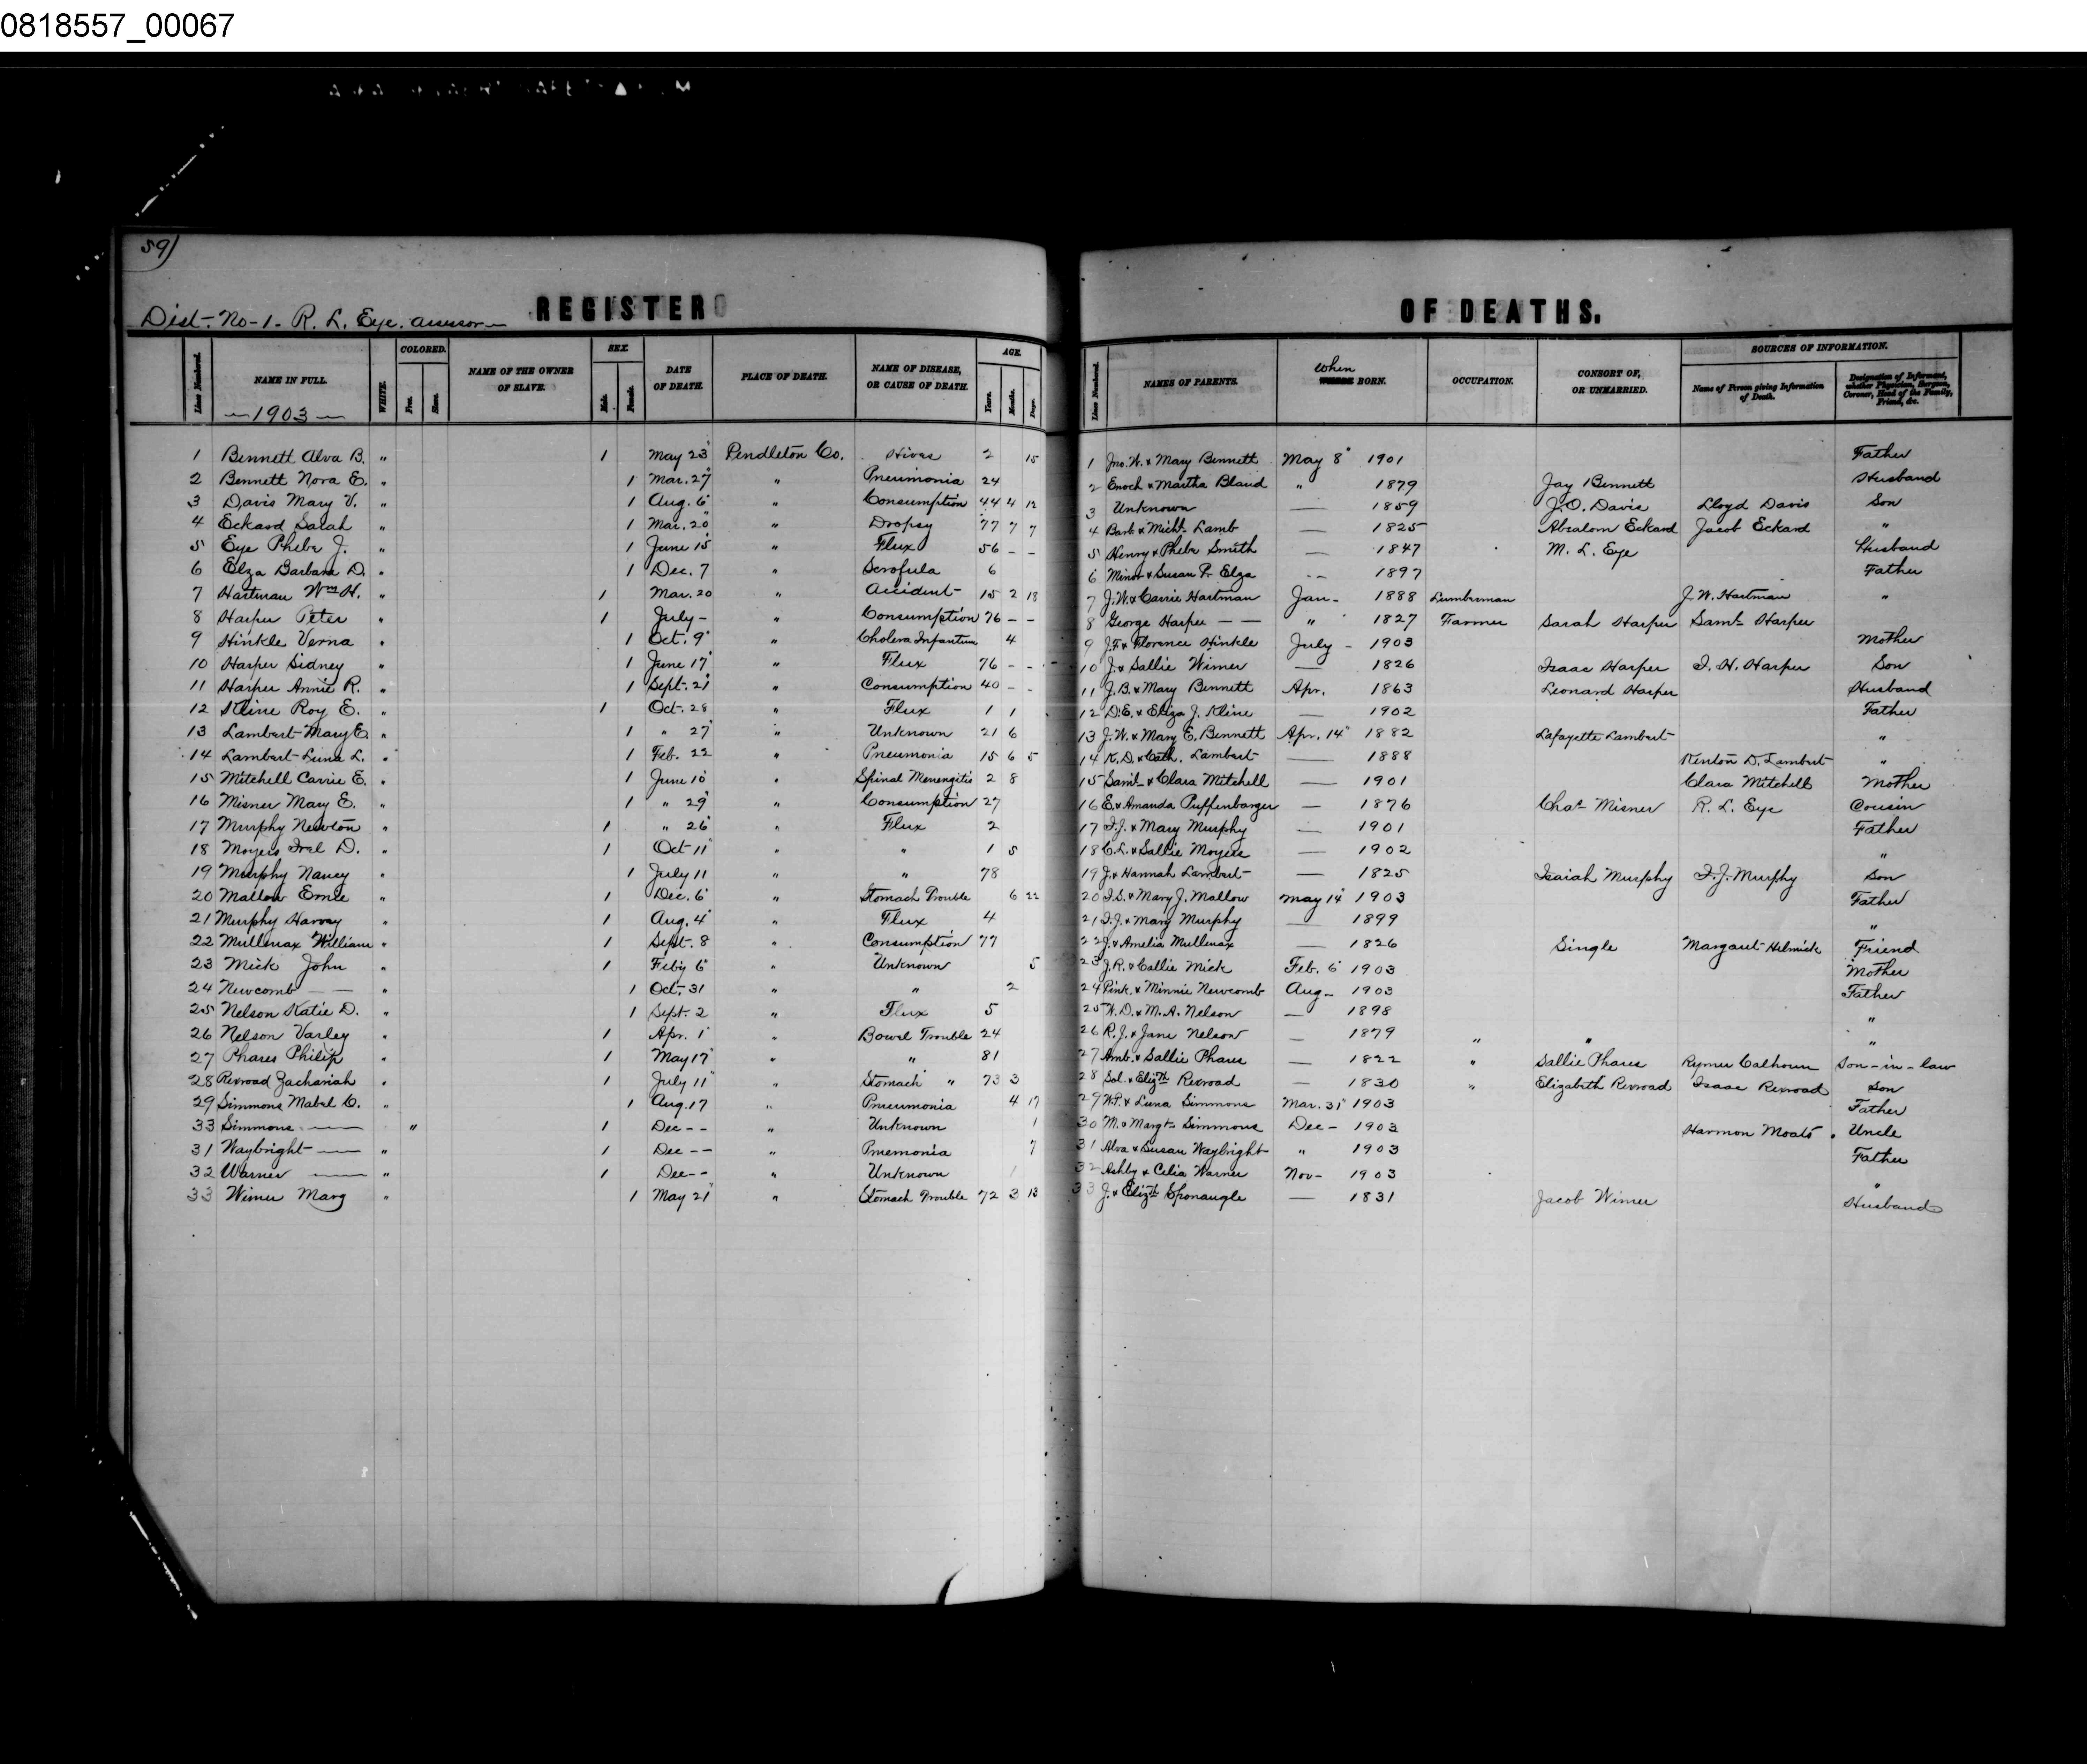 0818557_00067
59)
REGISTER
Dist. No-1. R. L. Eye. assessor
Lines Numbered. NAME IN FULL. WHITE. COLORED. Free. Slave. NAME OF THE OWNER OF SLAVE. SEX. Male. Female. DATE OF DEATH. PLACE OF DEATH. NAME OF DISEASE, OR CAUSE OF DEATH. AGE. Years. Months. Days.
—1903—
1 Bennett Alva B. " 1 May 23 Pendleton Co. Hives 2 15
2 Bennett Nora E. " 1 Mar. 27 " Pneumonia 24
3 Davis Mary V. " 1 Aug. 6 " Consumption 44 4 12
4 Eckard Sarah " 1 Mar. 20 " Dropsy 77 7 7
5 Eye Phebe J. " 1 June 15 " Flux 56 - -
6 Elza Barbara D. " 1 Dec. 7 " Scrofula 6
7 Hartman Wm H. " 1 Mar. 20 " Accident 15 2 18
8 Harper Peter " 1 July - " Consumption 76 - -
9 Hinkle Verna " 1 Oct. 9 " Cholera Infantum 4
10 Harper Sidney " 1 June 17 " Flux 76 - -
11 Harper Annie R. " 1 Sept. 21 " Consumption 40 - -
12 Kline Roy E. " 1 Oct. 28 " Flux 1 1
13 Lambert Mary E. " 1 " 27 " Unknown 21 6
14 Lambert Luna L. " 1 Feb. 22 " Pneumonia 15 6 5
15 Mitchell Carrie E. " 1 June 10 " Spinal Menengitis 2 8
16 Misner Mary E. " 1 " 29 " Consumption 27
17 Murphy Newton " 1 " 26 " Flux 2
18 Moyers Iral D. " 1 Oct 11 " " 1 5
19 Murphy Nancy " 1 July 11 " " 78
20 Mallow Ernie " 1 Dec. 6 " Stomach Trouble 6 22
21 Murphy Harvey " 1 Aug. 4 " Flux 4
22 Mullenax William " 1 Sept. 8 " Consumption 77
23 Mick John " 1 Feby 6 " Unknown 5
24 Newcomb — — " 1 Oct. 31 " " 2
25 Nelson Katie D. " 1 Sept. 2 " Flux 5
26 Nelson Varley " 1 Apr. 1 " Bowel Trouble 24
27 Phares Philip " 1 May 17 " " 81
28 Rexroad Zachariah " 1 July 11 " Stomach " 73 3
29 Simmons Mabel C. " 1 Aug. 17 " Pneumonia 4 17
33 Simmons — " 1 Dec - - " Unknown 1
31 Waybright — " 1 Dec - - " Pnemonia 7
32 Warner — " 1 Dec - - " Unknown 1
33 Wimer Marg " 1 May 21 " Stomach Trouble 72 3 13
OF DEATHS.
Lines Numbered. NAMES OF PARENTS. When BORN. OCCUPATION. CONSORT OF, OR UNMARRIED. SOURCES OF INFORMATION. Name of Person giving Information of Death. Designation of Informant, whether Physician, Surgeon, Coroner, Head of the Family, Friend, &c.
1 Jno. W. & Mary Bennett May 8 1901 Father
2 Enoch & Martha Bland " 1879 Jay Bennett Husband
3 Unknown — 1859 J.O. Davis Lloyd Davis Son
4 Barb. & Michl. Lamb — 1825 Absalom Eckard Jacob Eckard "
5 Henry & Phebe Smith — 1847 M. L. Eye Husband
6 Minor & Susan P. Elza - - 1897 Father
7 J.W. & Carrie Hartman Jan - 1888 Lumberman J.W. Hartman "
8 George Harper — — " 1827 Farmer Sarah Harper Saml Harper
9 J.F. & Florence Hinkle July - 1903 Mother
10 J. & Sallie Wimer — 1826 Isaac Harper I. H. Harper Son
11 J. B. & Mary Bennett Apr. 1863 Leonard Harper Husband
12 D.E. & Eliza J. Kline — 1902 Father
13 J. W. & Mary E. Bennett Apr. 14 1882 Lafayette Lambert "
14 K. D. & Cath. Lambert — 1888 Kenton D. Lambert "
15 Saml. & Clara Mitchell — 1901 Clara Mitchell Mother
16 E. & Amanda Puffenbarger — 1876 Chas. Misner R. L. Eye Cousin
17 I.J. & Mary Murphy — 1901 Father
18 C. L. & Sallie Moyers — 1902 "
19 J. & Hannah Lambert — 1825 Isaiah Murphy I.J. Murphy Son
20 I.S. & Mary J. Mallow May 14 1903 Father
21 I.J. & Mary Murphy — 1899 "
22 J. & Amelia Mullenax — 1826 Single Margaret Helmick Friend
23 J.R. & Callie Mick Feb. 6 1903 Mother
24 Pink. & Minnie Newcomb Aug - 1903 Father
25 W. D. & M. A. Nelson — 1898 "
26 R. J. & Jane Nelson — 1879 " " "
27 Amb. & Sallie Phares — 1822 " Sallie Phares Rymer Calhoun Son-in-law
28 Sol. & Elizth Rexroad — 1830 " Elizabeth Rexroad Isaac Rexroad Son
29 W.P. & Luna Simmons Mar. 31 1903 Father
30 M. & Margt Simmons Dec - 1903 Harmon Moats Uncle
31 Alva & Susan Waybright " 1903 Father
32 Ashby & Celia Warner Nov - 1903 "
33 J. & Elizth Sponaugle — 1831 Jacob Wimer Husband